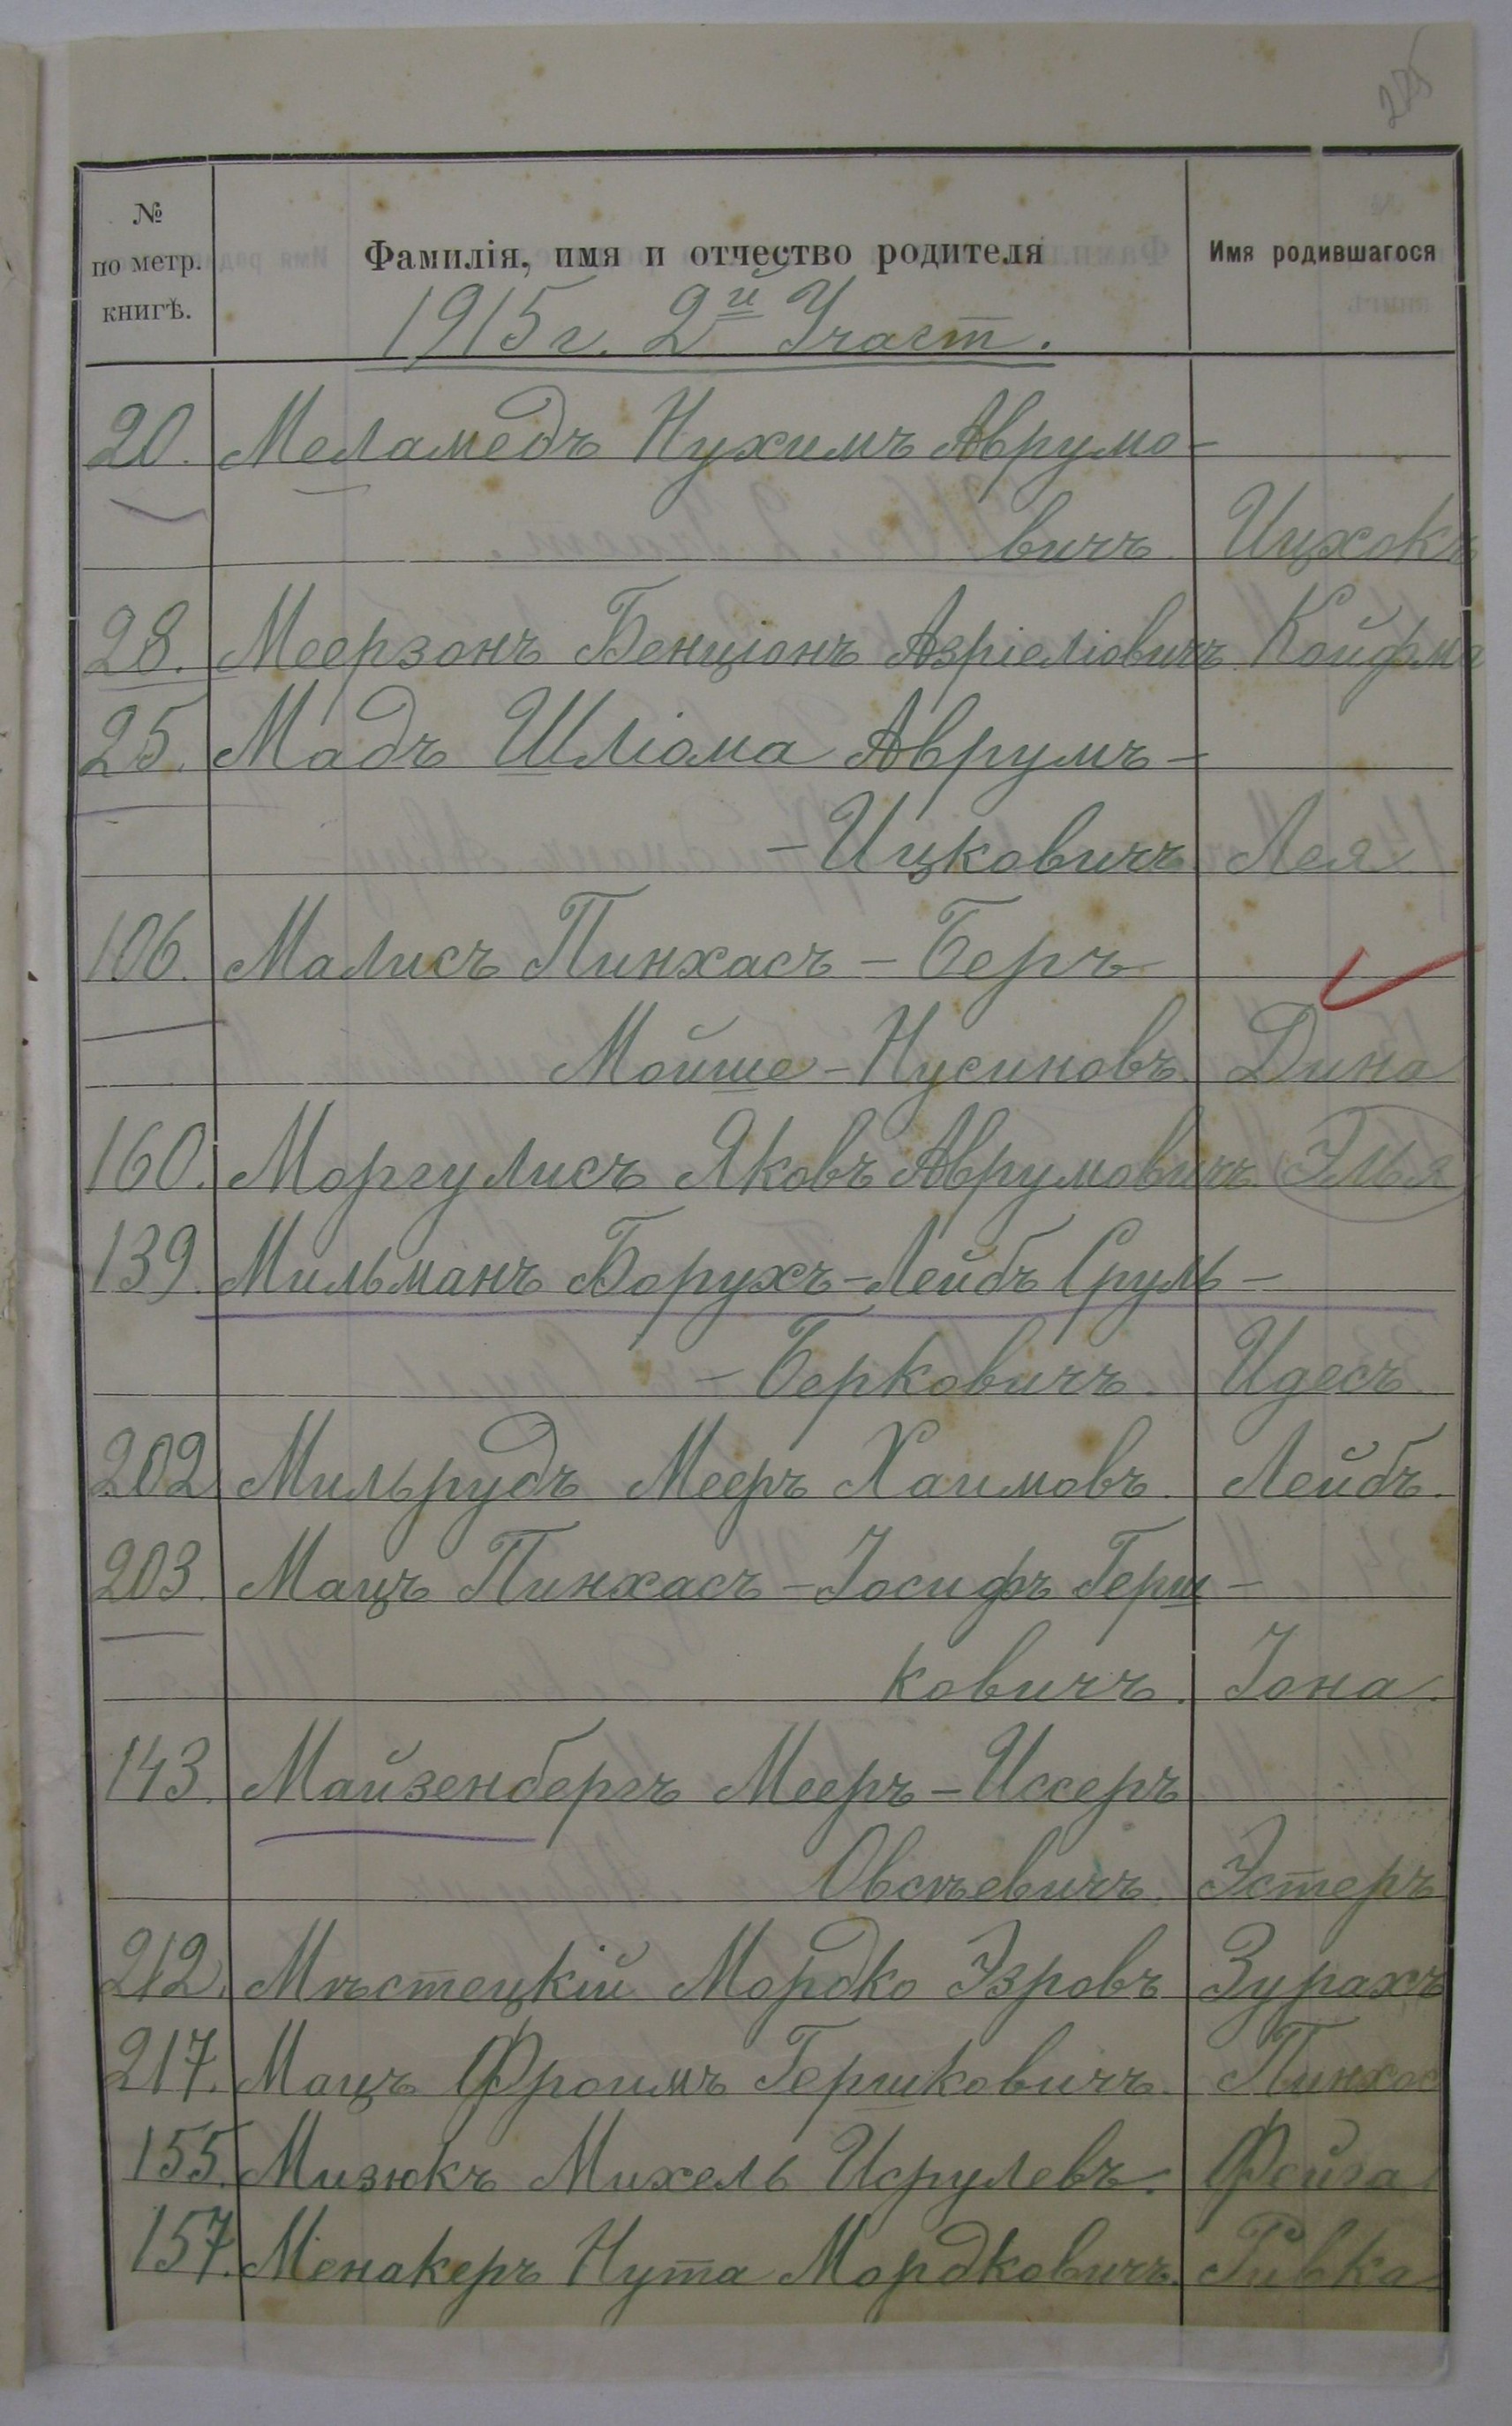 225
№ по метр. книгѣ.
Фамилія, имя и отчество родителя
Имя родившагося
1915 г. 2й Участ.
20. Меламедъ Нухимъ Аврумо-
вичъ. Ицхокъ
28. Меерзонъ Бенціонъ Азріеліовичъ Койфма
25. Мадъ Шліома Аврумъ-
-Ицковичъ. Лея
106. Малисъ Пинхасъ-Беръ
Мойше-Нусиновъ. Дина
160. Моргулисъ Яковъ Аврумовичъ Элья
139. Мильманъ Борухъ-Лейбъ Сруль-
-Берковичъ. Идесъ
202 Мильрудъ Мееръ Хаимовъ. Лейбъ.
203. Мацъ Пинхасъ-Іосифъ Герш-
ковичъ. Іона.
143. Майзенбергъ Мееръ-Иссеръ
Овсѣевичъ. Эстеръ
212. Мѣстецкій Мордко Эзровъ Зурахъ
217. Мацъ Фроимъ Гершковичъ. Пинхос
155. Мизюкъ Михель Исрулевъ. Фейга
157. Менакеръ Нута Мордковичъ. Ривка